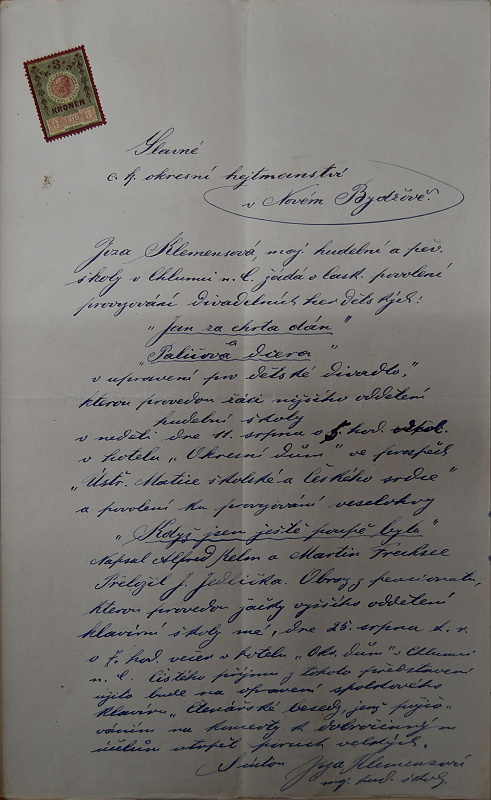 3
KRONEN
Slavné
c. k. okresní hejtmanství
v Novém Bydžově.
Joza Klemensová, maj. hudební a pěv.
školy v Chlumci n. C. žádá o lask. povolení
provozování divadelních her dětských:
"Jan za chrta dán"
a
"Paličova dcera"
v upravení pro dětské divadlo,
kterou provedou žáci nižšího oddělení
hudební školy
v neděli dne 11. srpna o 5. hod. odpol.
v hotelu "Okresní dům" ve prospěch
"Ústř. Matice školské a českého srdce"
a povolení ku provozování veselohry
"Když jsem ještě poupě byla"
Napsal Alfred Relm a Martin Frechsee
Přeložil J. Jedlička. Obraz z pensionátu,
kterou provedou žačky vyššího oddělení
klavírní školy mé, dne 25. srpna t. r.
o 7. hod. večer v hotelu "Okr. dům" v Chlumci
n. C. Čistého příjmu z tohoto představení
užito bude na opravení spolkového
klavíru "Čtenářské besedy, jenž půjčo-
váním na koncerty k dobročinným
účelům utrpěl poruch velkých.
Joza Klemensová
maj. hud. školy.